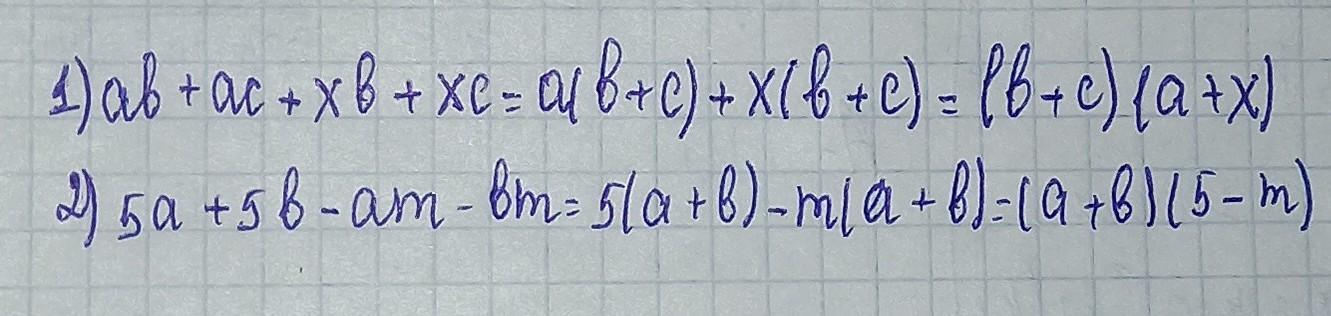 1) ab + ac + xb + xc = a(b + c) + x(b + c) = (b + c)(a + x)
2) 5a + 5b - am - bm = 5(a + b) - m(a + b) = (a + b)(5 - m)